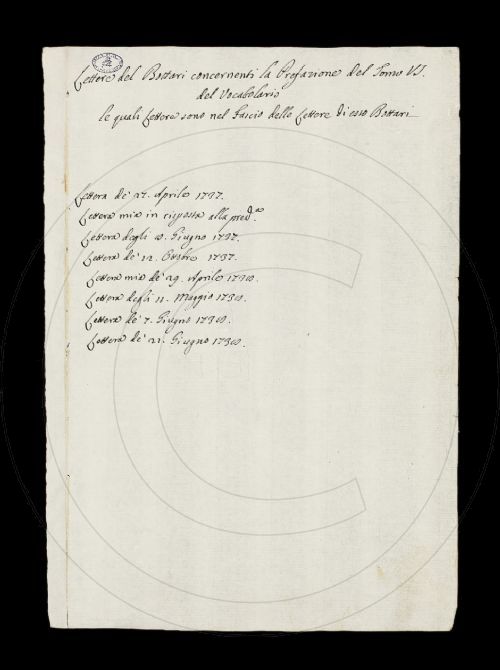 Lettere del Bottari concernenti la Prefazione del Tomo VI.
del Vocabolario
le quali Lettere sono nel Fascio delle Lettere di esso Bottari
Lettera de' 27. Aprile 1737.
Lettera mia in risposta alla pred.a
Lettera degli 8. Giugno 1737.
Lettera de' 12. Ottobre 1737.
Lettera mia de' 29. Aprile 1738.
Lettera degli 11. Maggio 1738.
Lettera de' 7. Giugno 1738.
Lettera de' 21. Giugno 1738.